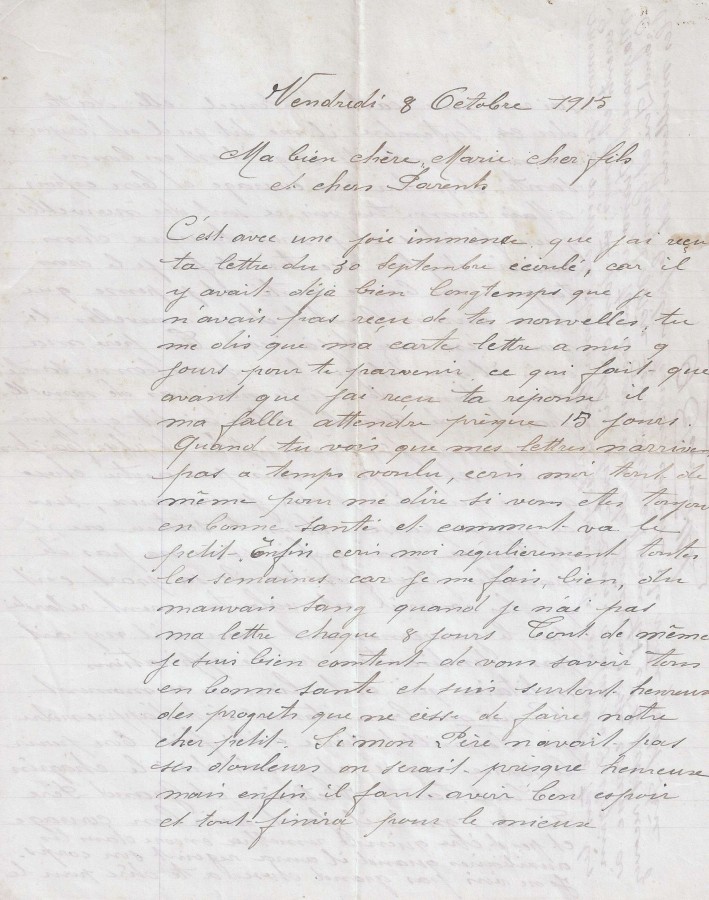 Vendredi 8 Octobre 1915
Ma bien chère Marie cher fils
et chers Parents
C'est avec une joie immense que j'ai reçu
ta lettre du 30 septembre écoulé, car il
y avait déjà bien longtemps que je
n'avais pas reçu de tes nouvelles, tu
me dis que ma carte lettre a mis 9
jours pour te parvenir ce qui fait que
avant que j'ai reçu ta réponse il
ma fallu attendre presque 15 jours.
Quand tu vois que mes lettres n'arrivent
pas a temps voulu, ecris moi tout de
même pour me dire si vous etes toujou
en bonne santé et comment va le
petit. Enfin ecris moi régulierement toutes
les semaines car je me fais, bien, du
mauvais sang quand je n'ai pas
ma lettre chaque 8 jours Tout de même
je suis bien content de vous savoir tous
en bonne sante et suis surtout heureux
des progrets que ne cesse de faire notre
cher petit. Si mon Père n'avait pas
ses douleurs on serait presque heureux
mais enfin il faut avoir bon espoir
et tout finira pour le mieux